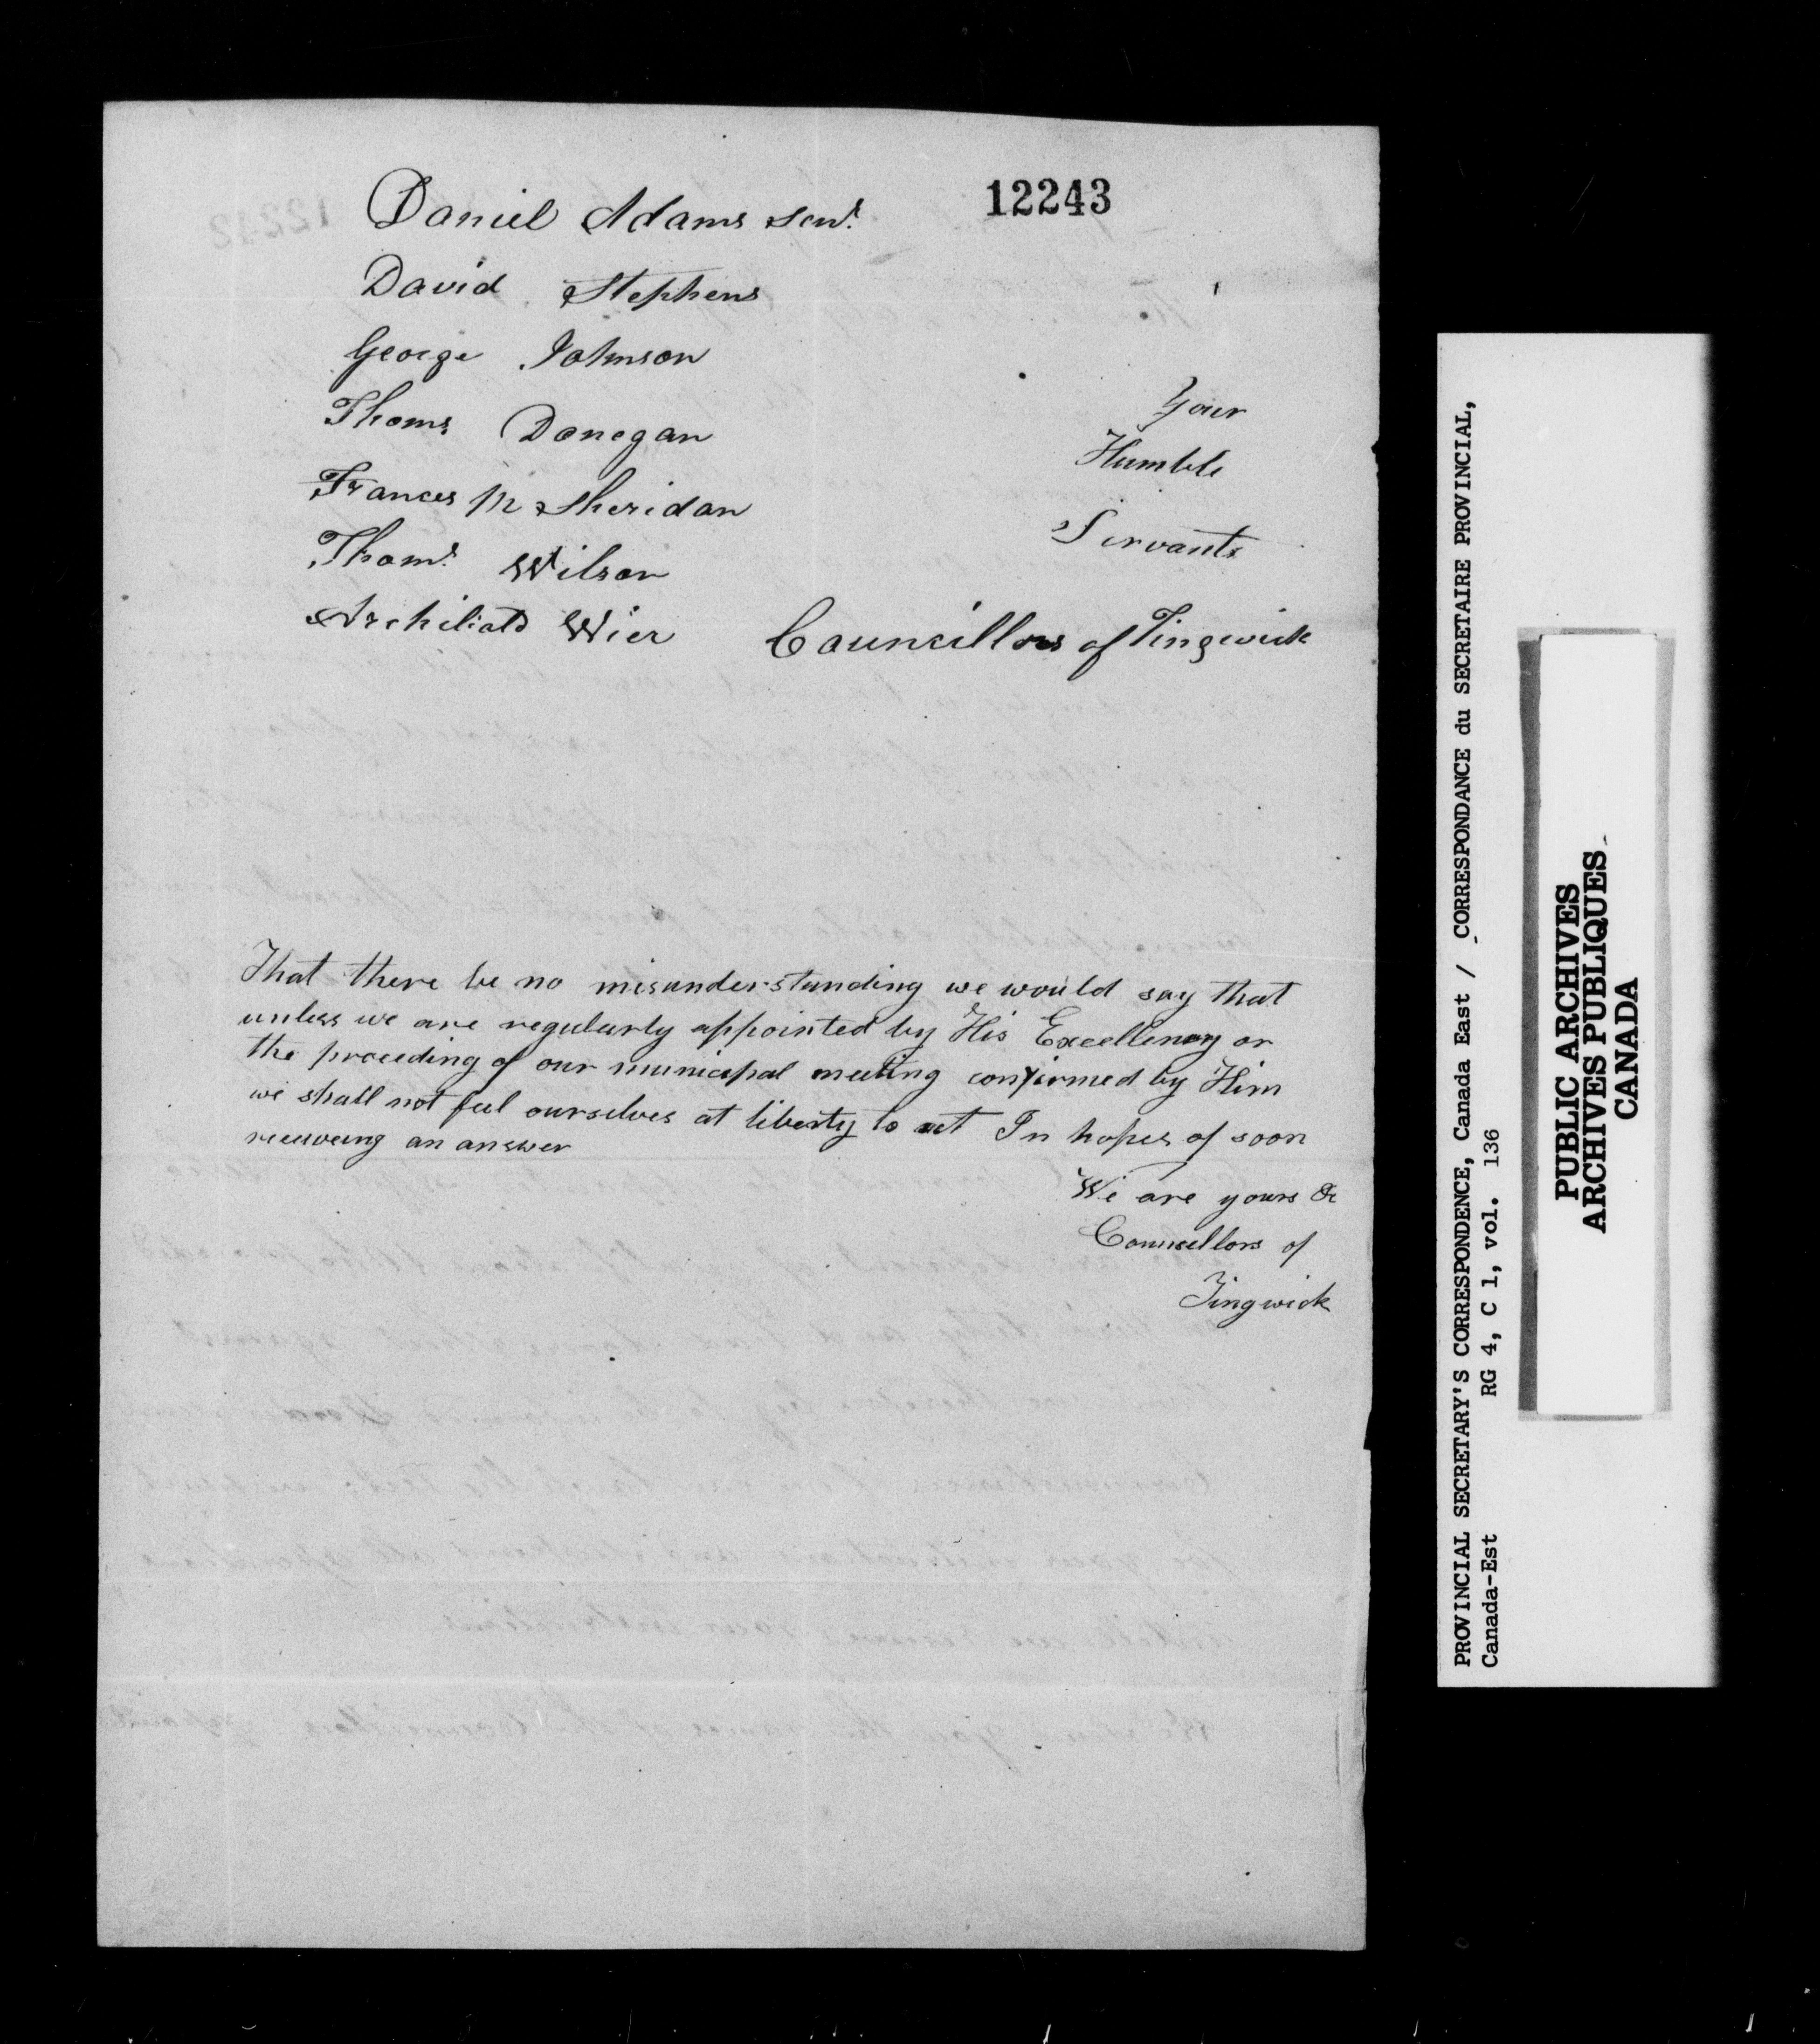 12243
Daniel Adams senr.
David Stephens
George Johnson
Thoms Donegan
Frances M Sheridan
Thoms. Wilson
Archibald Wier
Your
Humble
Servants
Councillors of Tingwick
That there be no misunderstanding we would say that
unless we are regularly appointed by His Excellency or
the proceeding of our municipal meeting confirmed by Him
we shall not feel ourselves at liberty to act In hopes of soon
receiveing an answer
We are yours &c
Councellors of
Tingwick
PROVINCIAL SECRETARY'S CORRESPONDENCE, Canada East / CORRESPONDANCE du SECRETAIRE PROVINCIAL,
Canada-Est RG 4, C 1, vol. 136
PUBLIC ARCHIVES
ARCHIVES PUBLIQUES
CANADA